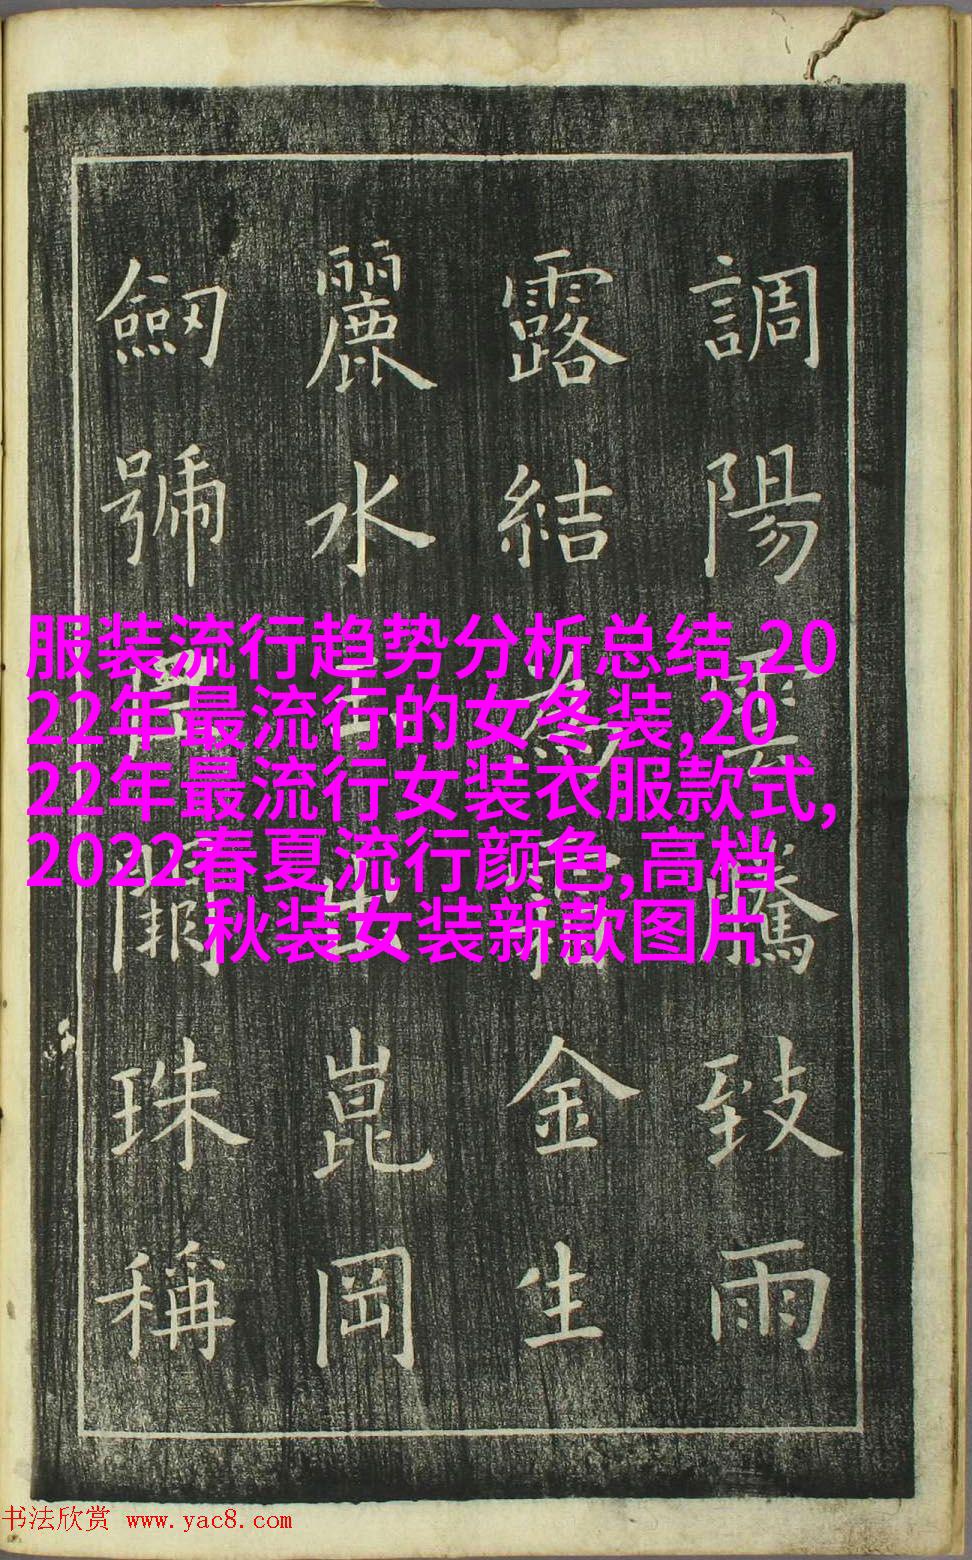 調陽雲騰致雨
露結為金生
麗水出崑岡
劒號闕珠稱
服装流行趋势分析总结,20
22年最流行的女冬装,20
22年最流行女装衣服款式,
2022春夏流行颜色,高档
秋装女装新款图片
书法欣赏 www.yac8.com